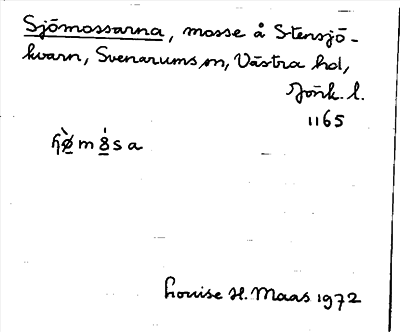 Sjömossarna, mosse å Stensjö-
kvarn, Svenarums sn, Västra hd,
Jönk. l.
1165
Louise H. Maas 1972